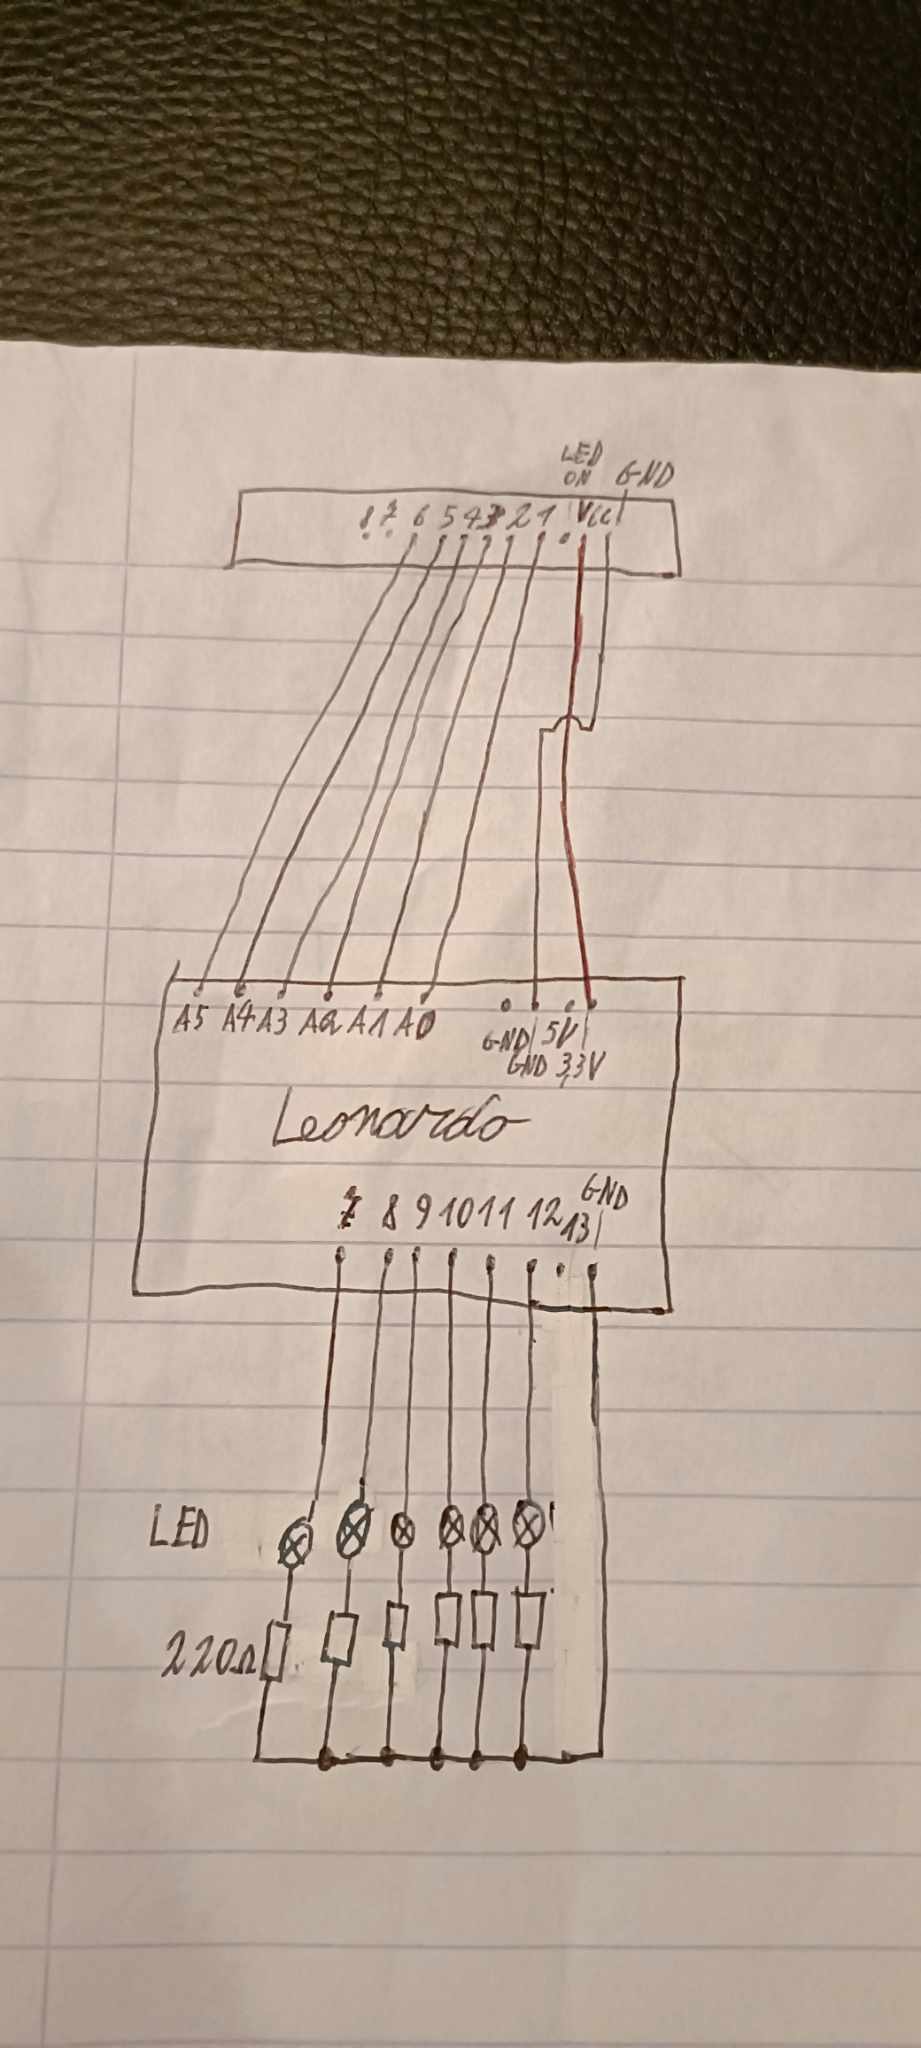 LED
ON GND
8 7 6 5 4 3 2 1 VCC
A5 A4 A3 A2 A1 A0
GND 5V
GND 3,3V
Leonardo
GND
7 8 9 10 11 12 13
LED
220Ω